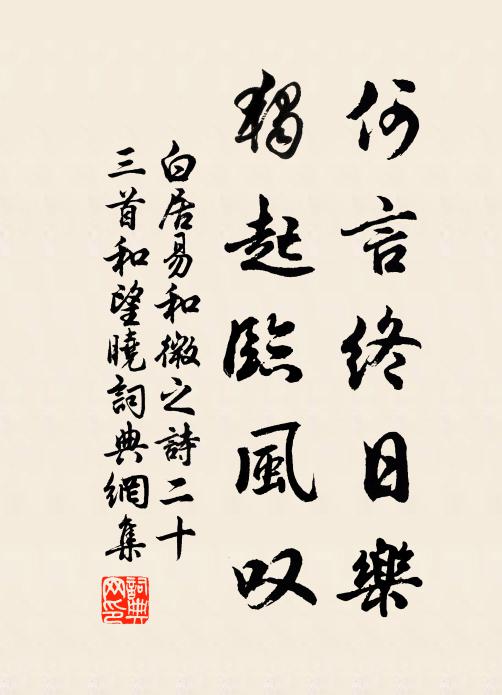 何言終日樂
獨起臨風叹
白居易和微之詩二十
三首和望曉詞典網集
詞典
网印